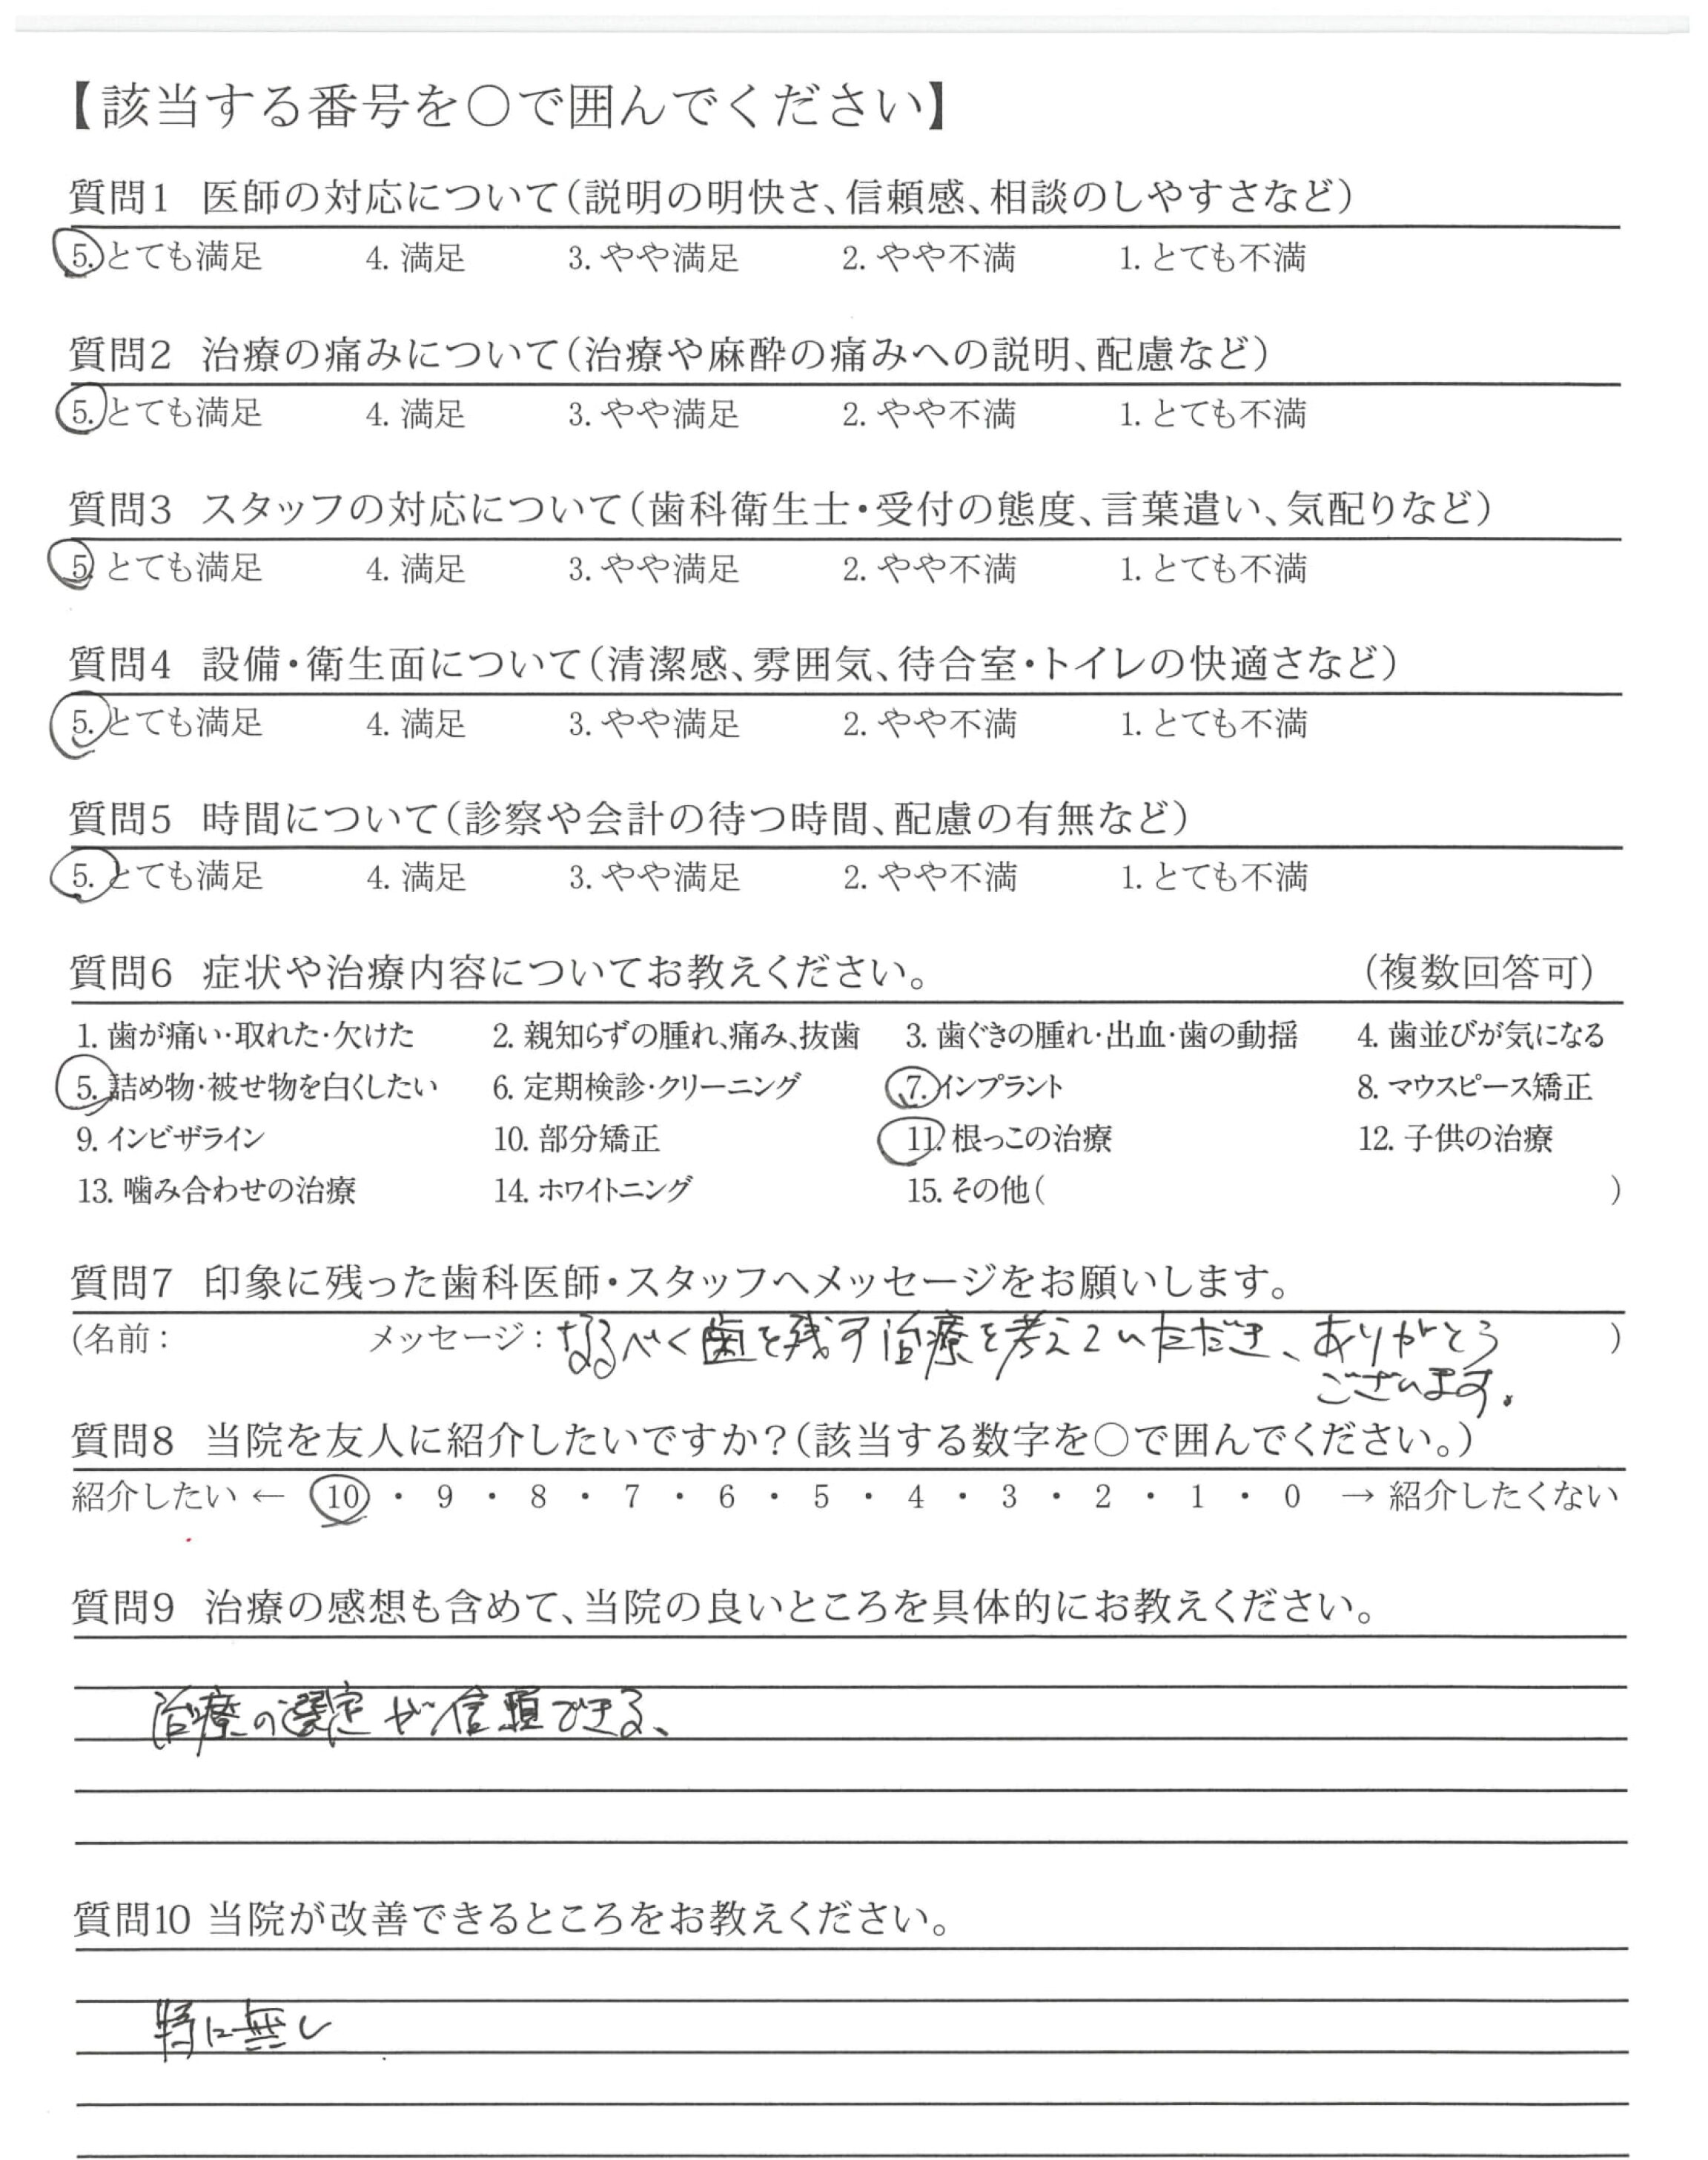 【該当する番号を○で囲んでください】
質問1 医師の対応について(説明の明快さ、信頼感、相談のしやすさなど)
5. とても満足 4. 満足 3. やや満足 2. やや不満 1. とても不満
質問2 治療の痛みについて(治療や麻酔の痛みへの説明、配慮など)
5. とても満足 4. 満足 3. やや満足 2. やや不満 1. とても不満
質問3 スタッフの対応について(歯科衛生士・受付の態度、言葉遣い、気配りなど)
5. とても満足 4. 満足 3. やや満足 2. やや不満 1. とても不満
質問4 設備・衛生面について(清潔感、雰囲気、待合室・トイレの快適さなど)
5. とても満足 4. 満足 3. やや満足 2. やや不満 1. とても不満
質問5 時間について(診察や会計の待つ時間、配慮の有無など)
5. とても満足 4. 満足 3. やや満足 2. やや不満 1. とても不満
質問6 症状や治療内容についてお教えください。 (複数回答可)
1. 歯が痛い・取れた・欠けた 2. 親知らずの腫れ、痛み、抜歯 3. 歯ぐきの腫れ・出血・歯の動揺 4. 歯並びが気になる
5. 詰め物・被せ物を白くしたい 6. 定期検診・クリーニング 7. インプラント 8. マウスピース矯正
9. インビザライン 10. 部分矯正 11. 根っこの治療 12. 子供の治療
13. 噛み合わせの治療 14. ホワイトニング 15. その他( )
質問7 印象に残った歯科医師・スタッフへメッセージをお願いします。
(名前: メッセージ: なるべく歯を残す治療を考えていただき、ありがとう )
ございます。
質問8 当院を友人に紹介したいですか?(該当する数字を○で囲んでください。)
紹介したい ← 10 ・ 9 ・ 8 ・ 7 ・ 6 ・ 5 ・ 4 ・ 3 ・ 2 ・ 1 ・ 0 → 紹介したくない
質問9 治療の感想も含めて、当院の良いところを具体的にお教えください。
治療の選定が信頼できる、
質問10 当院が改善できるところをお教えください。
特に無し